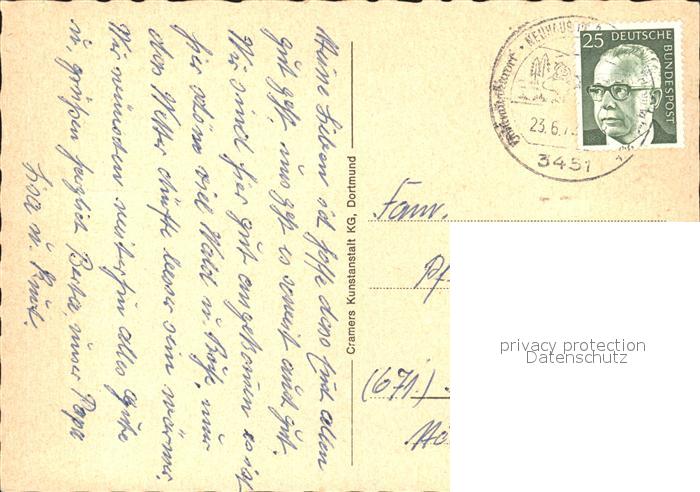 Meine Lieben ich hoffe dass Euch allen
gut geht, uns geht es soweit auch gut.
Wir sind hier gut angekommen es ist
hier schön viel Wald u. Ruhe, nur
das Wetter dürfte besser sein wärmer.
Wir wünschen weiterhin alles gute
u. grüßen herzlich Berta, unser Papa
Lisa u. Knut.
Cramers Kunstanstalt KG, Dortmund
NEUHAUS
23.6.73
3451
25 DEUTSCHE
BUNDESPOST
Fam.
Pf.
(671.)
privacy protection
Datenschutz